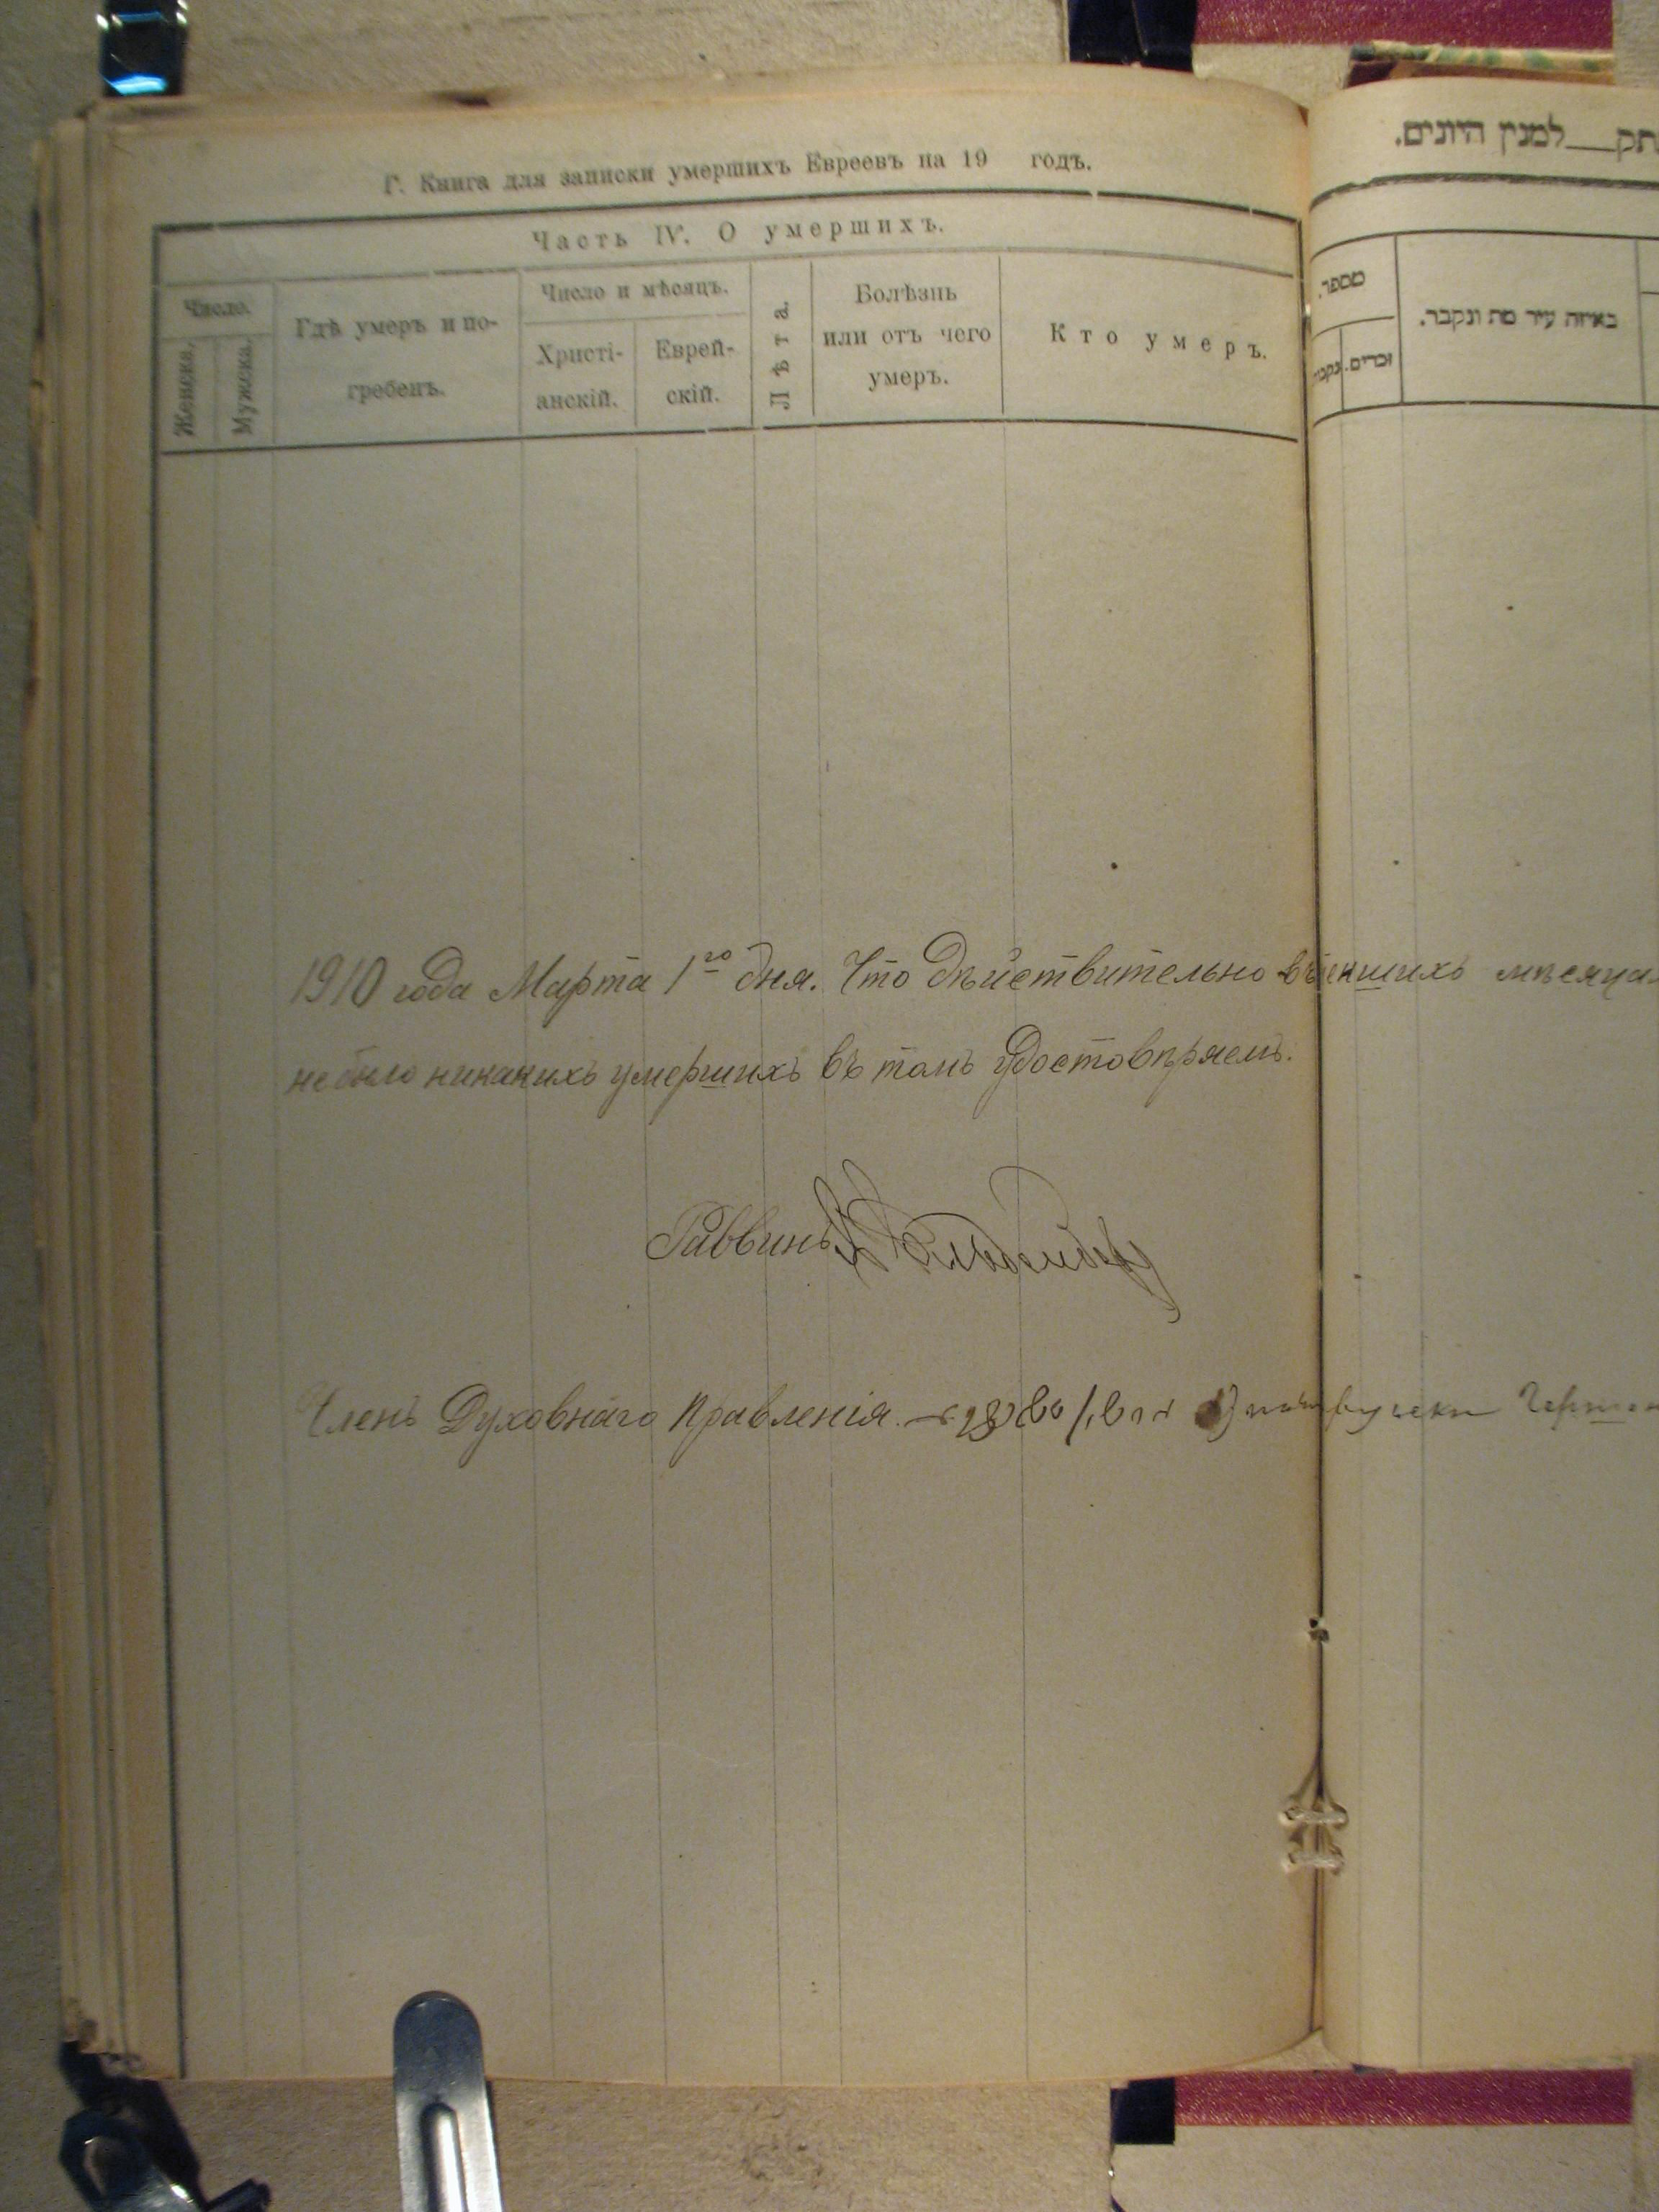 Г. Книга для записки умершихъ Евреевъ на 19 годъ.
Часть IV. О умершихъ.
Число.
Женска.
Мужска.
Гдѣ умеръ и по-
гребенъ.
Число и мѣсяцъ.
Христі-
анскій.
Еврей-
скій.
Лѣта.
Болѣзнь
или отъ чего
умеръ.
Кто умеръ.
1910 года Марта 1го дня. Что дѣйствительно мѣсяца
не было никакихъ умершихъ въ томъ удостовѣряемъ.
Раввинъ
Членъ Духовнаго Правленія.
למנין היונים.
מספר.
זכרים.
באיזה עיר מת ונקבר.